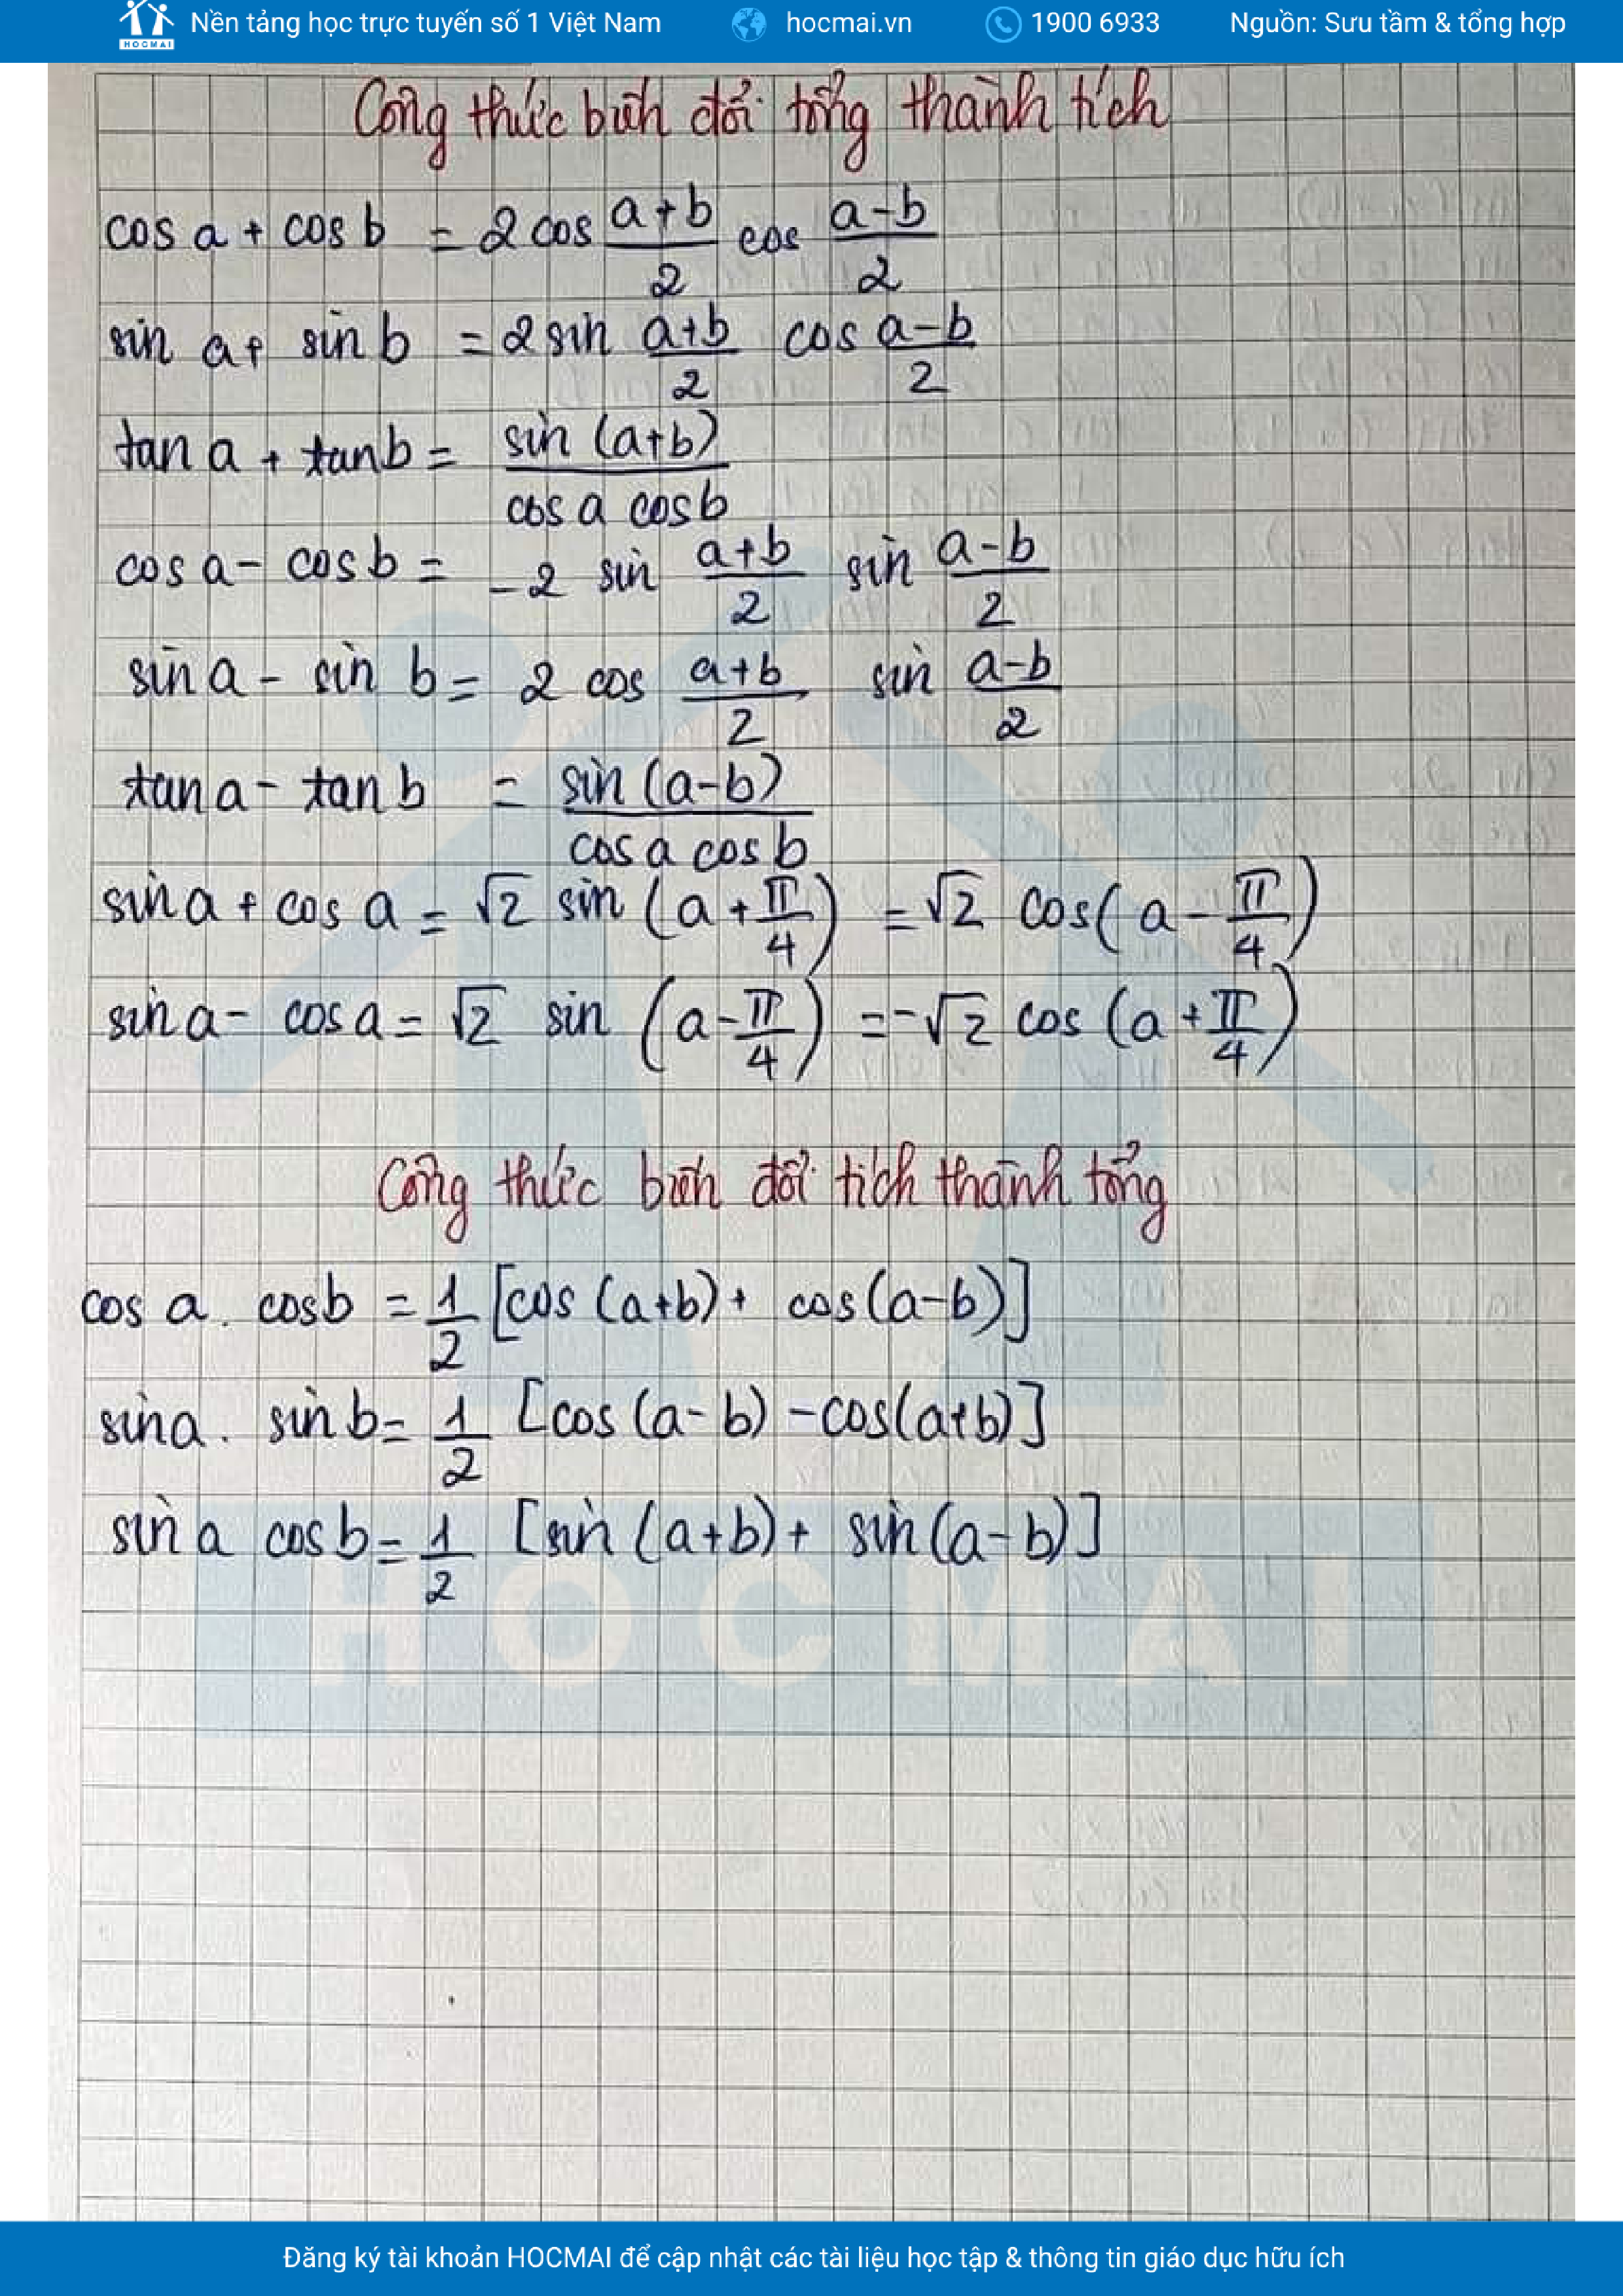 HOCMAI Nền tảng học trực tuyến số 1 Việt Nam hocmai.vn 1900 6933 Nguồn: Sưu tầm & tổng hợp
Công thức biến đổi tổng thành tích
cos a + cos b = 2 cos (a+b)/2 cos (a-b)/2
sin a + sin b = 2 sin (a+b)/2 cos (a-b)/2
tan a + tan b = sin (a+b)/(cos a cos b)
cos a - cos b = -2 sin (a+b)/2 sin (a-b)/2
sin a - sin b = 2 cos (a+b)/2 sin (a-b)/2
tan a - tan b = sin (a-b)/(cos a cos b)
sin a + cos a = √2 sin (a + π/4) = √2 cos (a - π/4)
sin a - cos a = √2 sin (a - π/4) = -√2 cos (a + π/4)
Công thức biến đổi tích thành tổng
cos a . cos b = 1/2 [cos (a+b) + cos (a-b)]
sin a . sin b = 1/2 [cos (a-b) - cos (a+b)]
sin a cos b = 1/2 [sin (a+b) + sin (a-b)]
HOCMAI
Đăng ký tài khoản HOCMAI để cập nhật các tài liệu học tập & thông tin giáo dục hữu ích